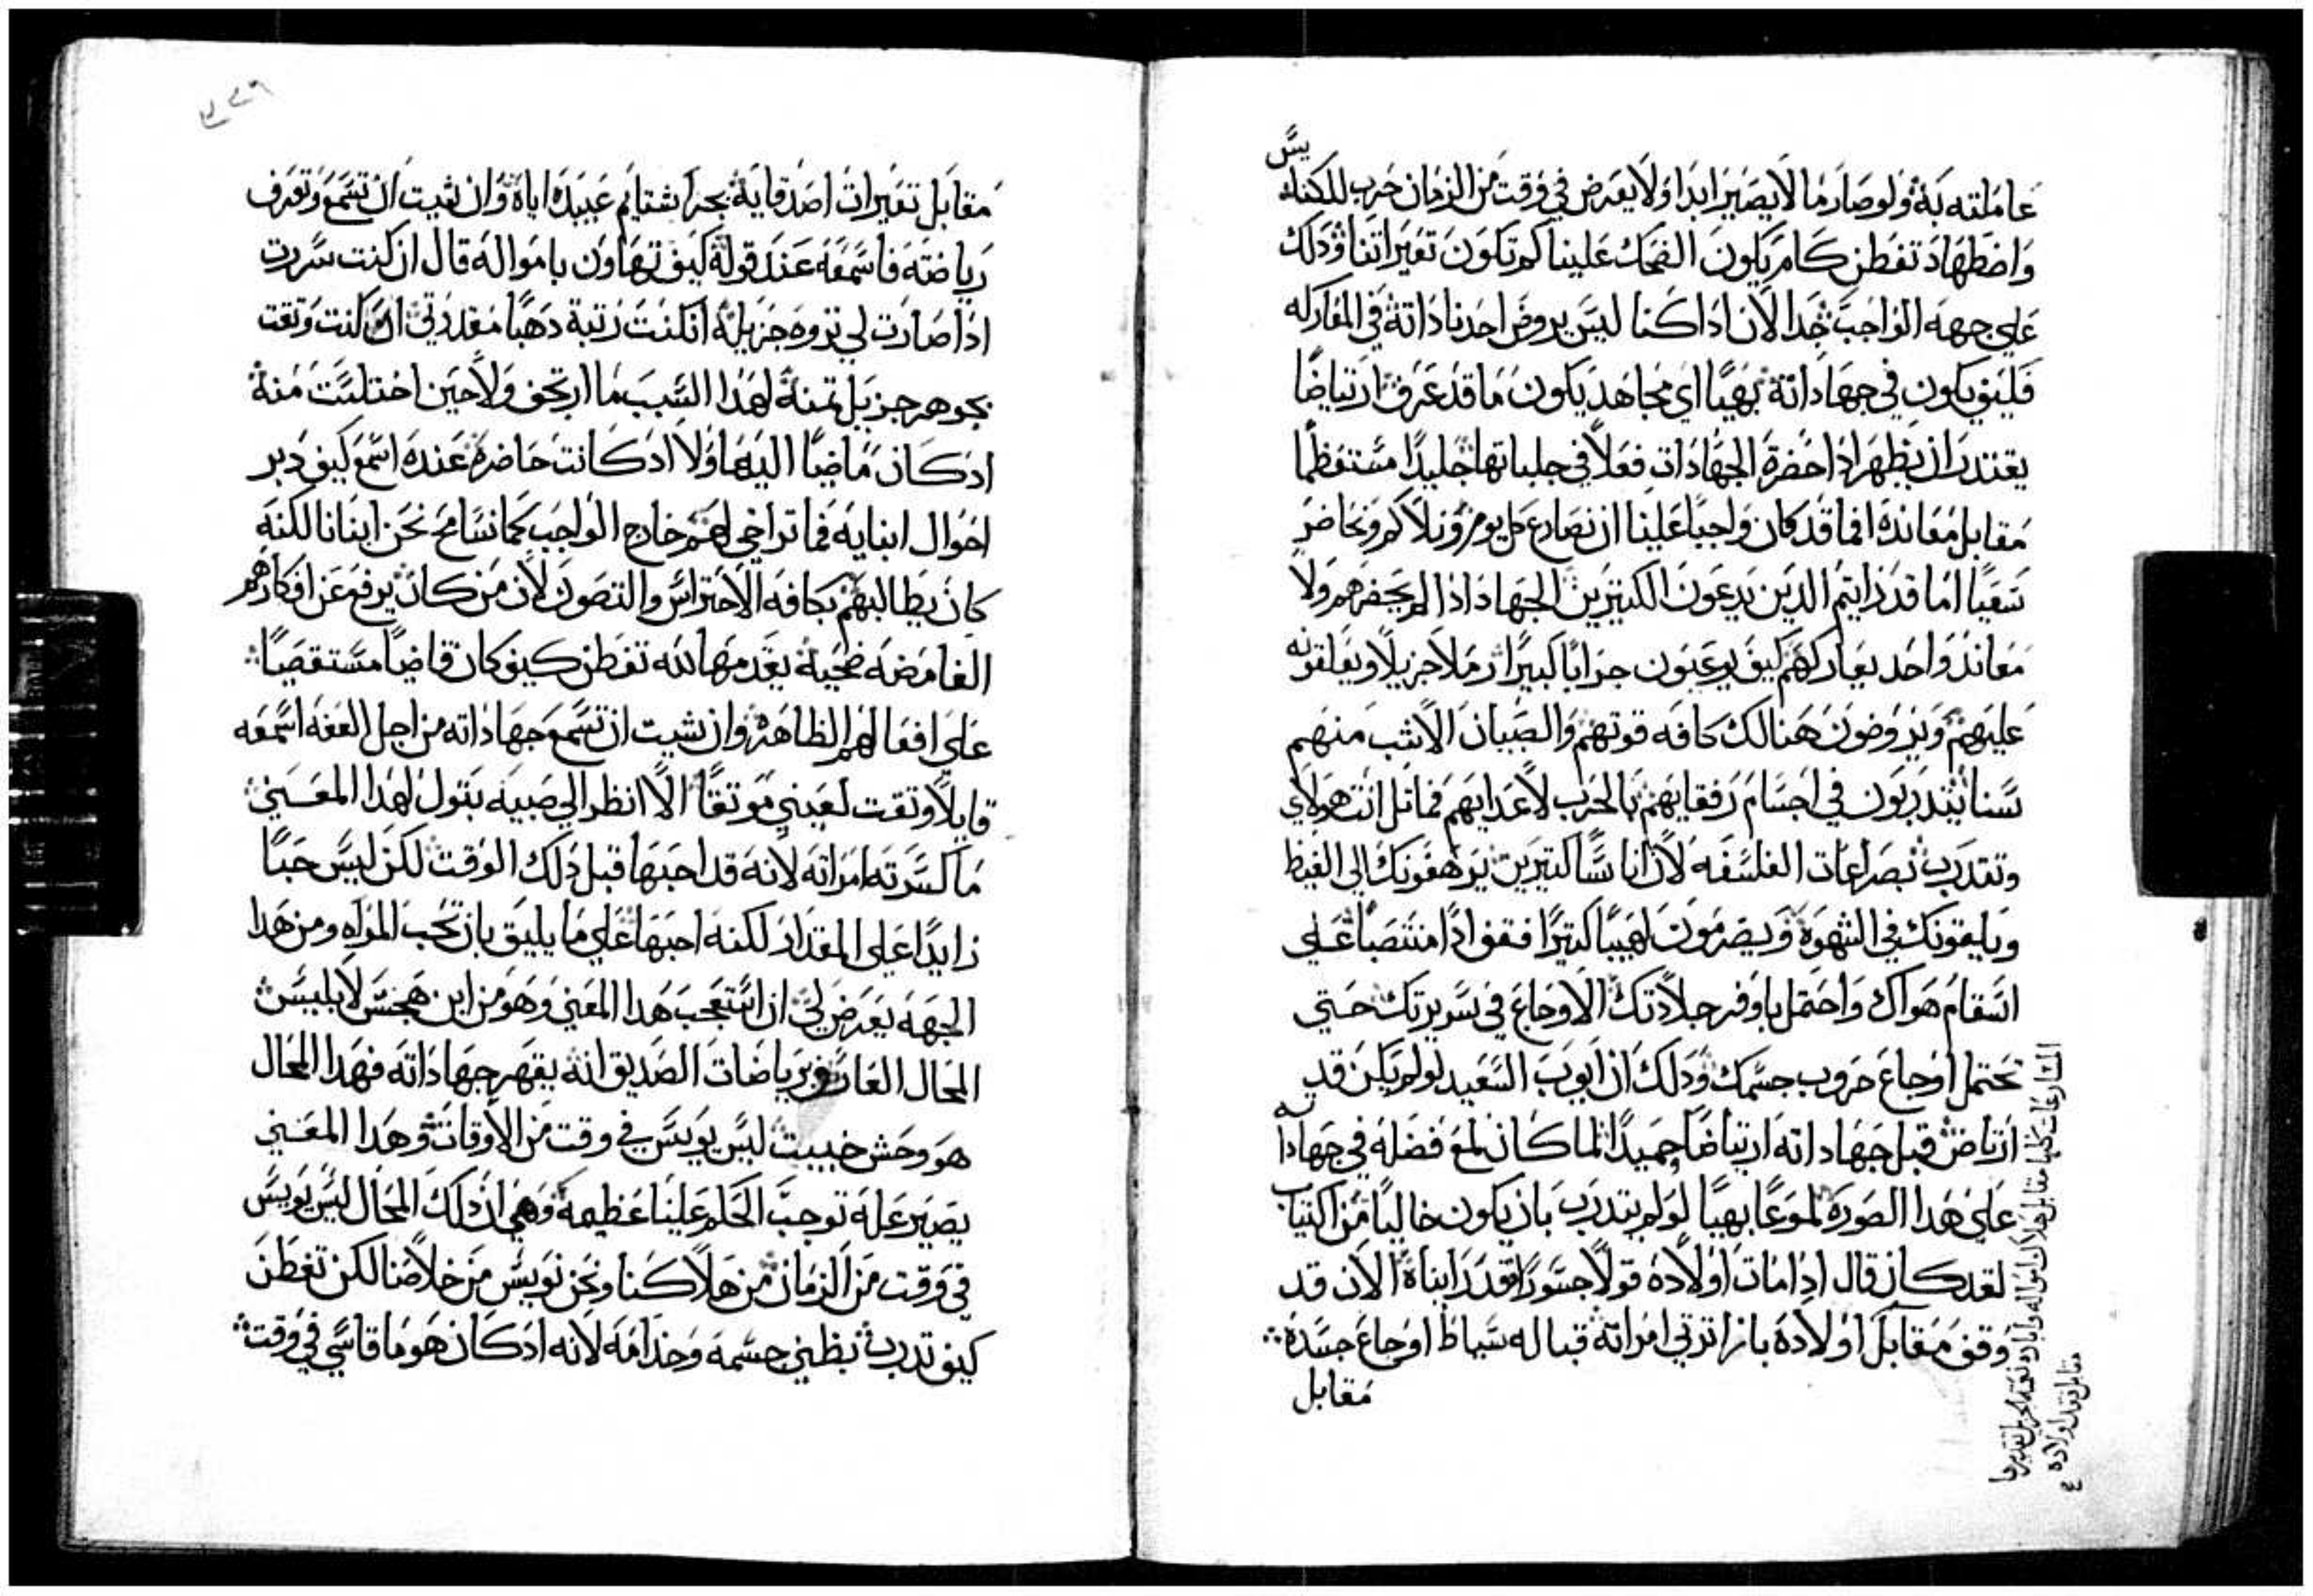 عاملته به ولو صار ما لا يصير ابدا ولا يعرض في وقت من الزمان حرب للكنايس
واضطهاد تفطن كام يكون الضحك علينا كم تكون تعييراتنا وذلك
علي جهه الواجب جدا لان اذا كنا ليس يروض احدنا داته في المعاركه
فكيف يكون في جهاداته بهيا اي مجاهد يكون ما قد عرف ارتياضا
يقتدر ان يظهر اذا حضرة الجهادات فعلا في حلباتها جليدا مستعظما
مقابل معانده افما قد كان واجبا علينا ان نصارع كل يوم ونلاكم ونحاضر
سعيا اما قد رايتم الدين يدعون الكتيرين الجهاد اذا لم يحضرهم ولا
معاند واحد يعاركهم كيف يوعبون جرابا كبيرا رملا جزيلا ويعلقونه
عليهم ويروضون هنالك كافه قوتهم والصبيان الاشب منهم
سنا يتدربون في اجسام رفقايهم بالحرب لاعدايهم فماتل انت هولاي
وتقدرب بصراعات الفلسفه لان اناسا كتيرين يرهفونك الي الغيظ
ويلقونك في الشهوة ويضرمون لهيبا كتيرا فقف اذا منتصبا علي
اسقام هواك واحتمل باوفر جلادتك الاوجاع في سريرتك حتي
تحتمل اوجاع حروب جسمك وذلك ان ايوب السعيد لو لم يكن قد
ارتاض قبل جهاداته ارتياضا حميدا لما كان لمع فضله في جهاداته
علي هذا الصورة لموعا بهيا لو لم يتدرب بان يكون خاليا من اكتياب
لقد كان قال اذا مات اولاده قولا جسورا فقد رايناه الان قد
وقف مقابل اولاده بازا ترتي امراته قباله سياط اوجاع جسده
مقابل
المصارعات كلها مقابل هلاك امواله وابادة نعمه الجزيل تقديرها
مقابل فقد اولاده
مقابل تعييرات اصدقايه بحرا شتايم عبيده اياه وان شيت ان تسمع وتعرف
رياضته فاسمعه عند قوله كيف تهاون بامواله قال ان كنت سررت
اذا صارت لي تروه جزيله ان كنت رتبة دهبا مقدرتي ان كنت وتقت
بجوهر جزيل تمنه لهذا السبب ما ارتجف ولا حين اختلست منه
اد كان ماضيا اليها ولا اد كانت حاضرة عنده اسمع كيف دبر
احوال ابنايه فما تراخي لهم خارج الواجب كما نسامح نحن ابنانا لكنه
كان يطالبهم بكافه الاحتراس والتصون لان من كان يرفع عن افكارهم
الغامضه ضحيه يقدمها لله تفطن كيف كان قاضيا مستقصيا
علي افعالهم الظاهره وان شيت ان تسمع جهاداته من اجل العفه اسمعه
قايلا وتقت لعيني موتقا الا انظر الي صبيه بتول لهذا المعني
ما كسرته امراته لانه قد احبها قبل ذلك الوقت لكن ليس حبا
زايدا علي المقدار لكنه احبها علي ما يليق بان تحب المراه ومن هدا
الجهه يعرض لي ان استعجب هدا المعني وهو من اين هجس لابليس
المحال العارف برياضات الصديق انه يقهر جهاداته فهدا المحال
هو وحش خبيت ليس يويس في وقت من الاوقات وهدا المعني
يصير عله توجب الحكم علينا عظيمه وهي ان دلك المحال ليس يويس
في وقت من الزمان من هلاكنا ونحن نويس من خلاصنا لكن تفطن
كيف تدرب بطني جسمه وخدامه لانه اد كان هو ما قاسي في وقت